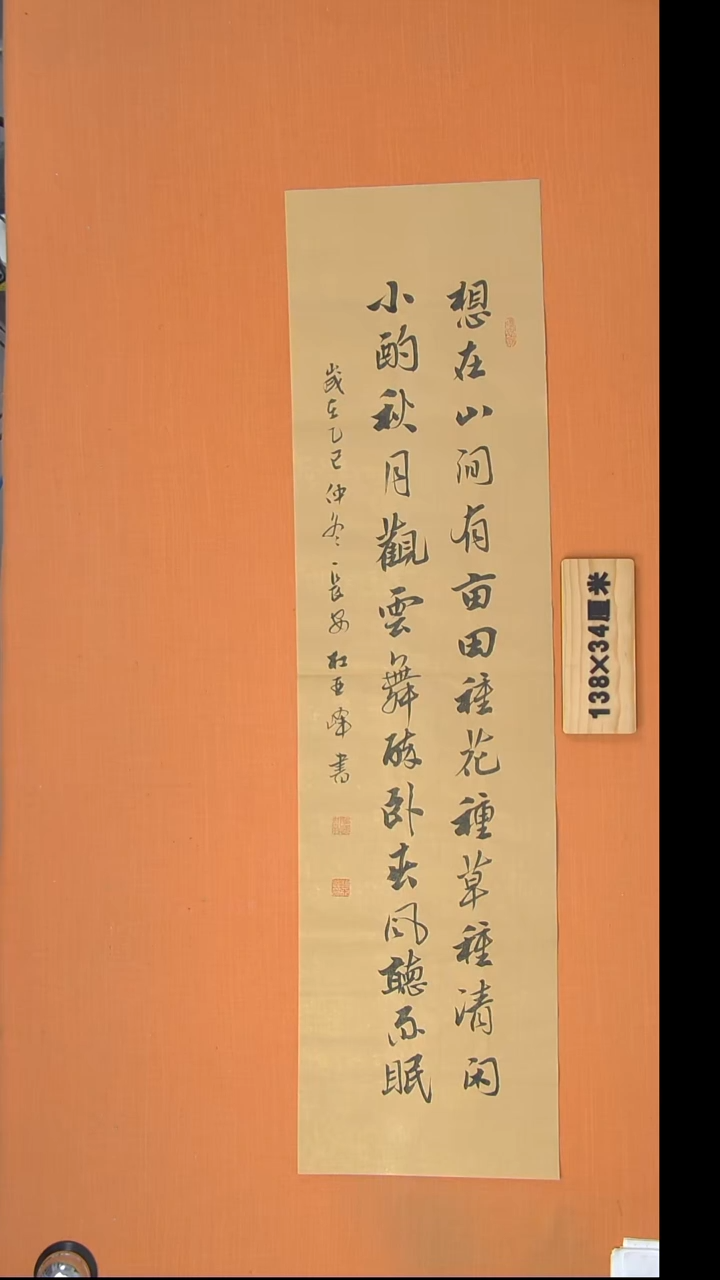 想在山间有亩田種花種草種清闲
小酌秋月觀雲舞醉卧春风聽雨眠
歲在乙巳仲冬長安杜亚峰書
138×34厘米